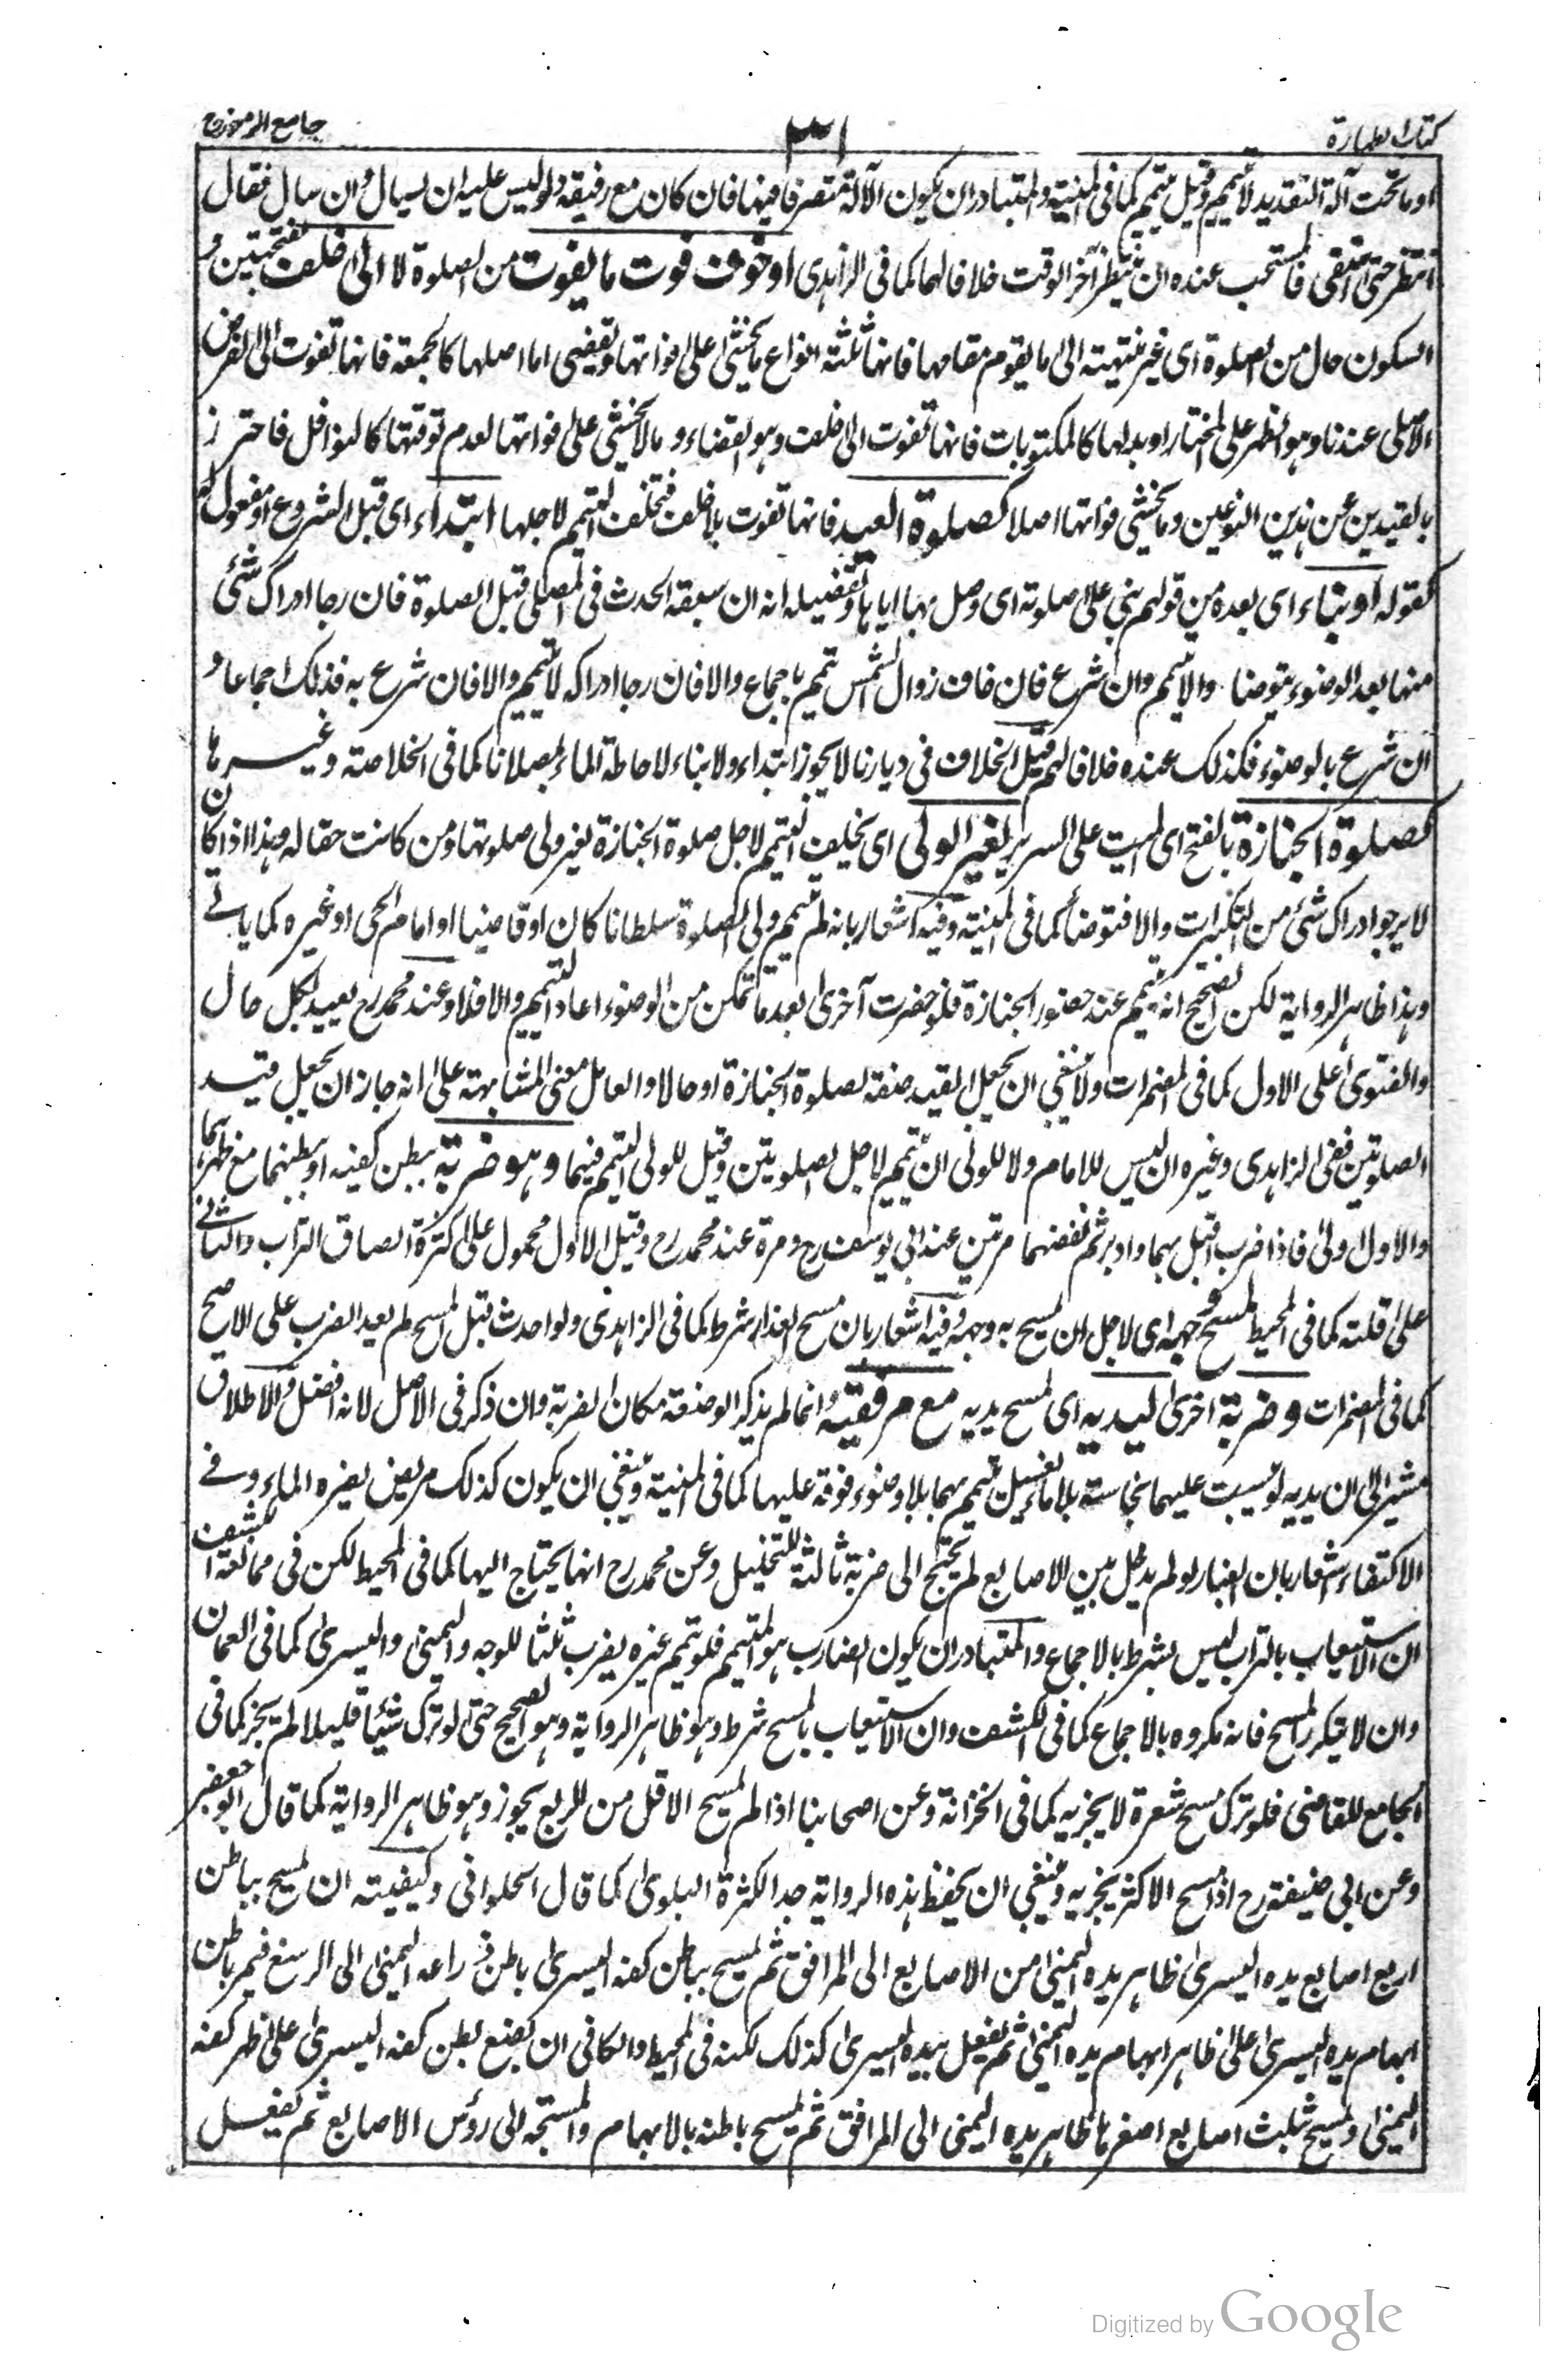 كتاب الطهارة
٣١
جامع الرموز ج١
او ما تحت آلة التقديد لا تيمم وقيل تيمم كما فى المنية والمتبادر ان يكون الآلة متصرفا فيها فان كان مع رفيقه دلو ليس عليه ان يسال وان سال فقال
انتظر حتى استقى فالمستحب عنده ان ينتظر آخر الوقت خلافا لهما كما فى الزاهدى او خوف فوت ما يفوت من الصلوة لا الى خلف بفتحتين و
السكون حال من الصلوة اى غير منتهية الى ما يقوم مقامها فانها ثلثة انواع ما يخشى على فواتها وتقضى اما اصلها كالجمعة فانها تفوت الى الفرض
الاصلى عندنا وهو الظهر على المختار او بدلها كالمكتوبات فانها تفوت الى خلف وهو القضاء وما لا يخشى على فواتها لعدم توقتها كالنوافل فاحترز
بالقيدين عن هذين النوعين وما يخشى فواتها اصلا كصلوة العيد فانها تفوت بلا خلف فيخلف التيمم لاجلها ابتداء اى قبل الشروع او مفعول له
كقوله او بناء اى بعده من قولهم بنى على صلوته اى وصل بها اياها وتفصيله انه ان سبقه الحدث فى المصلى قبل الصلوة فان رجا ادراك شئ
منها بعد الوضوء يتوضأ والا تيمم وان شرع فان خاف زوال الشمس تيمم باجماع والا فان رجا ادراكه لا تيمم والا فان شرع به فذلك اجماعا و
ان شرع بالوضوء فكذلك عنده خلافا لهم قيل الخلاف فى ديارنا لا يجوز ابتداء ولا بناء لاحاطة الماء بمصلانا كما فى الخلاصة وغيرها
كصلوة الجنازة بالفتح اى الميت على السرير لغير الولى اى يخلف التيمم لاجل صلوة الجنازة لغير ولى صلوتها ومن كانت حقا له وهذا اذا كان
لا يرجو ادراك شئ من التكبيرات والا فتوضأ كما فى المنية وفيه اشعار بانه لم تيمم ولى الصلوة سلطانا كان او قاضيا او امام الحى او غيره كما ياتى
وهذا ظاهر الرواية لكن الصحيح انه تيمم عند حضور الجنازة فلو حضرت آخرى بعد ما تمكن من الوضوء اعاد التيمم والا فلا وعند محمد رح يعيد لكل حال
والفتوى على الاول كما فى المضمرات ولا ينبغى ان يجعل القيد صفة لصلوة الجنازة او حالا والعامل معنى المشابهة على انه جاز ان يجعل قيد
الصلوتين ففى الزاهدى وغيره ان ليس للامام ولا للولى ان تيمم لاجل الصلوتين وقيل للولى التيمم فيهما وهو ضربة ببطن كفيه او ببطنهما مع ظهرهما
والاول اولى فاذا ضرب اقبل بهما وادبر ثم نفضهما مرتين عند ابى يوسف رح ومرة عند محمد رح وقيل الاول محمول على كثرة الصاق التراب والثانى
على قلته كما فى المحيط لمسح وجهه اى لاجل ان يمسح به وجهه وفيه اشعار بان مسح العذار شرط كما فى الزاهدى ولو احدث قبل المسح لم يعد الضرب على الاصح
كما فى المضمرات وضربة اخرى ليديه اى لمسح يديه مع مرفقيه وانما لم يذكر الوضعة مكان الضربة وان ذكر فى الاصل لانه افضل والاطلاق
مشير الى ان يديه لو يبست عليهما نجاسة بلا ماء لغسل تيمم بهما بلا وضوء فوقه عليها كما فى المنية وينبغى ان يكون كذلك مريض يضره الماء وفى
الاكتفاء اشعار بان الغبار لو لم يدخل بين الاصابع لم تحتج الى ضربة ثالثة للتخليل وعن محمد رح انها يحتاج اليها كما فى المحيط لكن فى مخالفة الكشف
ان الاستيعاب بالتراب ليس بشرط بالاجماع والمتبادر ان يكون الضارب هو المتيمم فلو تيمم غيره يضرب ثلثا للوجه واليمنى واليسرى كما فى العمان
وان لا يتكرر المسح فانه مكروه بالاجماع كما فى الكشف وان الاستيعاب بالمسح شرط وهو ظاهر الرواية وهو الصحيح حتى لو ترك شيئا قليلا لم يجز كما فى
الجامع للقاضى فلو ترك مسح شعرة لا يجزيه كما فى الخزانة وعن اصحابنا اذا لم يمسح الاقل من الربع يجوز وهو ظاهر الرواية كما قال ابو جعفر
وعن ابى حنيفة رح اذا مسح الاكثر يجزيه وينبغى ان يحفظ هذه الرواية جدا لكثرة البلوى كما قال الحلوانى وكيفيته ان يمسح بباطن
اربع اصابع يده اليسرى ظاهر يده اليمنى من الاصابع الى المرافق ثم يمسح بباطن كفه اليسرى باطن ذراعه اليمنى الى الرسغ فيمر باطن
ابهام يده اليسرى على ظاهر ابهام يده اليمنى ثم يفعل بيده اليسرى كذلك لكنه فى المحيط والكافى ان يضع بطن كفه اليسرى على ظهر كفه
اليمنى ويمسح بثلث اصابع اصغرها ظاهر يده اليمنى الى المرافق ثم يمسح باطنه بالابهام والمسبحة الى رؤس الاصابع ثم يفعل
Digitized by Google